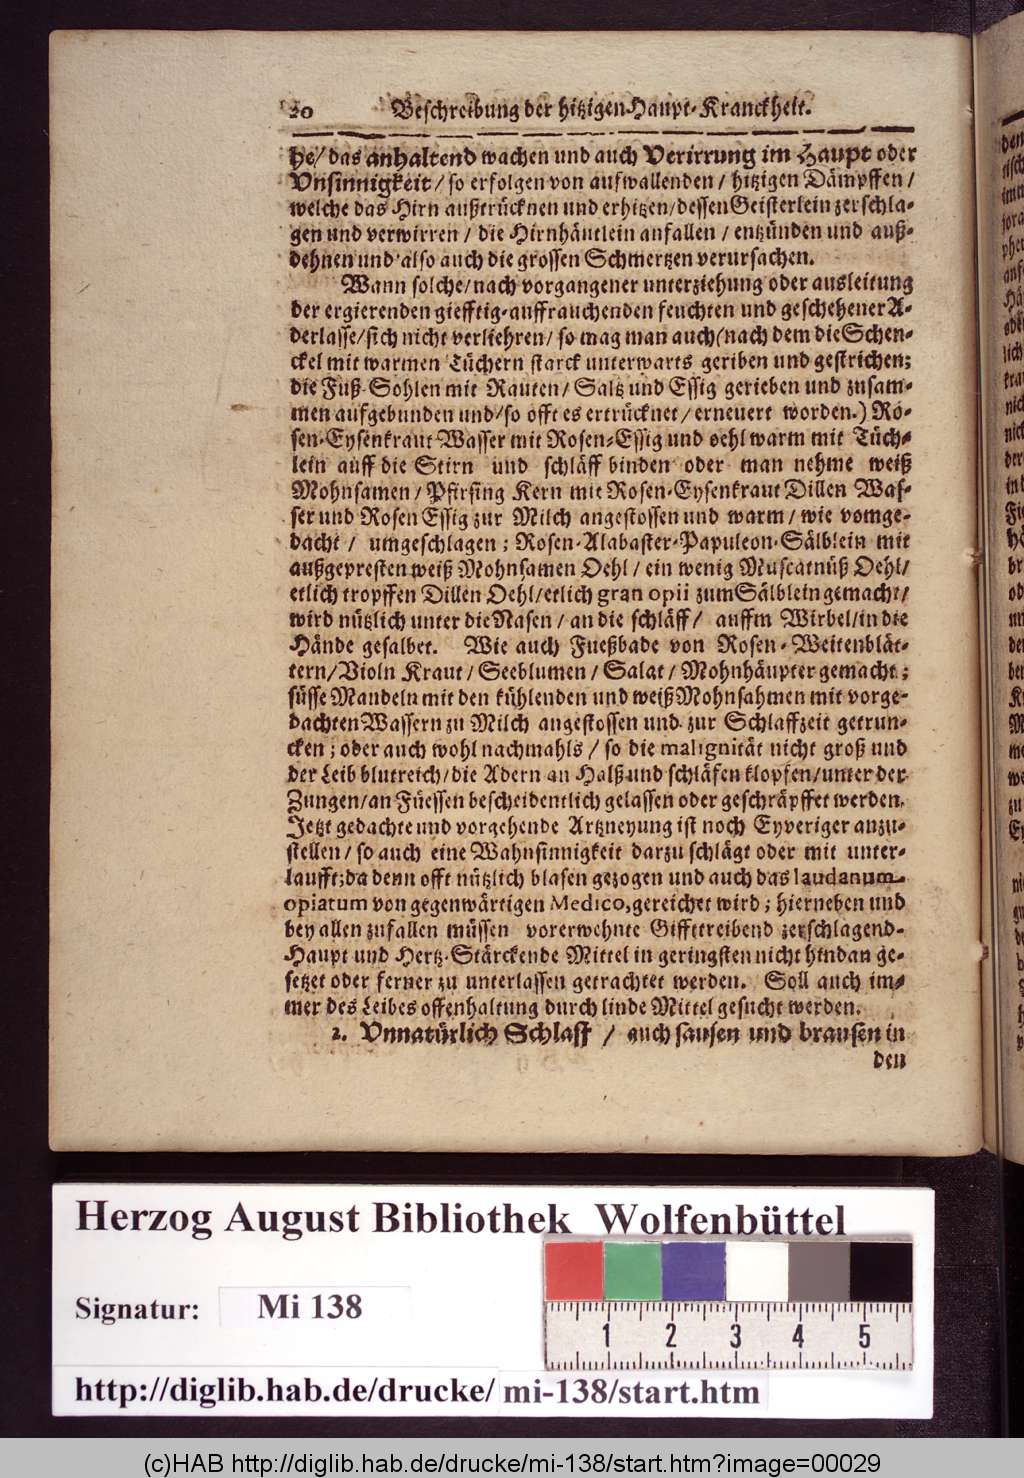 20 Beschreibung der hitzigen Haupt-Kranckheit.
he/ das anhaltend wachen und auch Verirrung im Haupt oder
Vnsinnigkeit/ so erfolgen von aufwallenden / hitzigen Dämpffen /
welche das Hirn außtrücknen und erhitzen/dessen Geisterlein zerschla-
gen und verwirren / die Hirnhäutlein anfallen / entzünden und auß-
dehnen und also auch die grossen Schmertzen verursachen.
Wann solche/nach vorgangener unterziehung oder ausleitung
der ergierenden giefftig-auffrauchenden feuchten und geschehener A-
derlasse/sich nicht verliehren/ so mag man auch (nach dem die Schen-
ckel mit warmen Tüchern starck unterwarts geriben und gestrichen;
die Fuß-Sohlen mit Rauten/ Saltz und Essig gerieben und zusam-
men aufgebunden und/so offt es ertrücknet/ erneuert worden.) Ro-
sen-Eysenkraut Wasser mit Rosen-Essig und oehl warm mit Tüch-
lein auff die Stirn und schläff binden oder man nehme weiß
Mohnsamen/ Pfirsing Kern mit Rosen-Eysenkraut Dillen Was-
ser und Rosen Essig zur Milch angestossen und warm/ wie vorge-
dacht / umgeschlagen; Rosen-Alabaster-Papuleon-Sälblein mit
außgepresten weiß Mohnsamen Oehl / ein wenig Muscatnüß Oehl/
etlich tropffen Dillen Oehl/etlich gran opii zum Sälblein gemacht/
wird nützlich unter die Nasen/ an die schläff/ auffm Wirbel/in die
Hände gesalbet. Wie auch Fueßbade von Rosen-Weitenblät-
tern/Violn Kraut / Seeblumen / Salat / Mohnhäupter gemacht;
süsse Mandeln mit den kühlenden und weiß Mohnsahmen mit vorge-
dachten Wassern zu Milch angestossen und zur Schlaffzeit getrun-
cken; oder auch wohl nachmahls / so die malignität nicht groß und
der Leib blutreich/die Adern an Halß und schläfen klopfen/unter der
Zungen/an Füessen bescheidentlich gelassen oder geschräpffet werden.
Jetzt gedachte und vorgehende Artzneyung ist noch Eyveriger anzu-
stellen / so auch eine Wahnsinnigkeit darzu schlägt oder mit unter-
laufft; da denn offt nützlich blasen gezogen und auch das laudanum
opiatum von gegenwärtigen Medico, gereichet wird; hierneben und
bey allen zufallen müssen vorerwehnte Giffttreibend zerschlagend-
Haupt und Hertz-Stärckende Mittel in geringsten nicht hindan ge-
setzet oder ferner zu unterlassen getrachtet werden. Soll auch im-
mer des Leibes offenhaltung durch linde Mittel gesucht werden.
2. Vnnatürlich Schlaff / auch sausen und brausen in
den
Herzog August Bibliothek Wolfenbüttel
Signatur: Mi 138
1 2 3 4 5
http://diglib.hab.de/drucke/ mi-138/start.htm
(c)HAB http://diglib.hab.de/drucke/mi-138/start.htm?image=00029